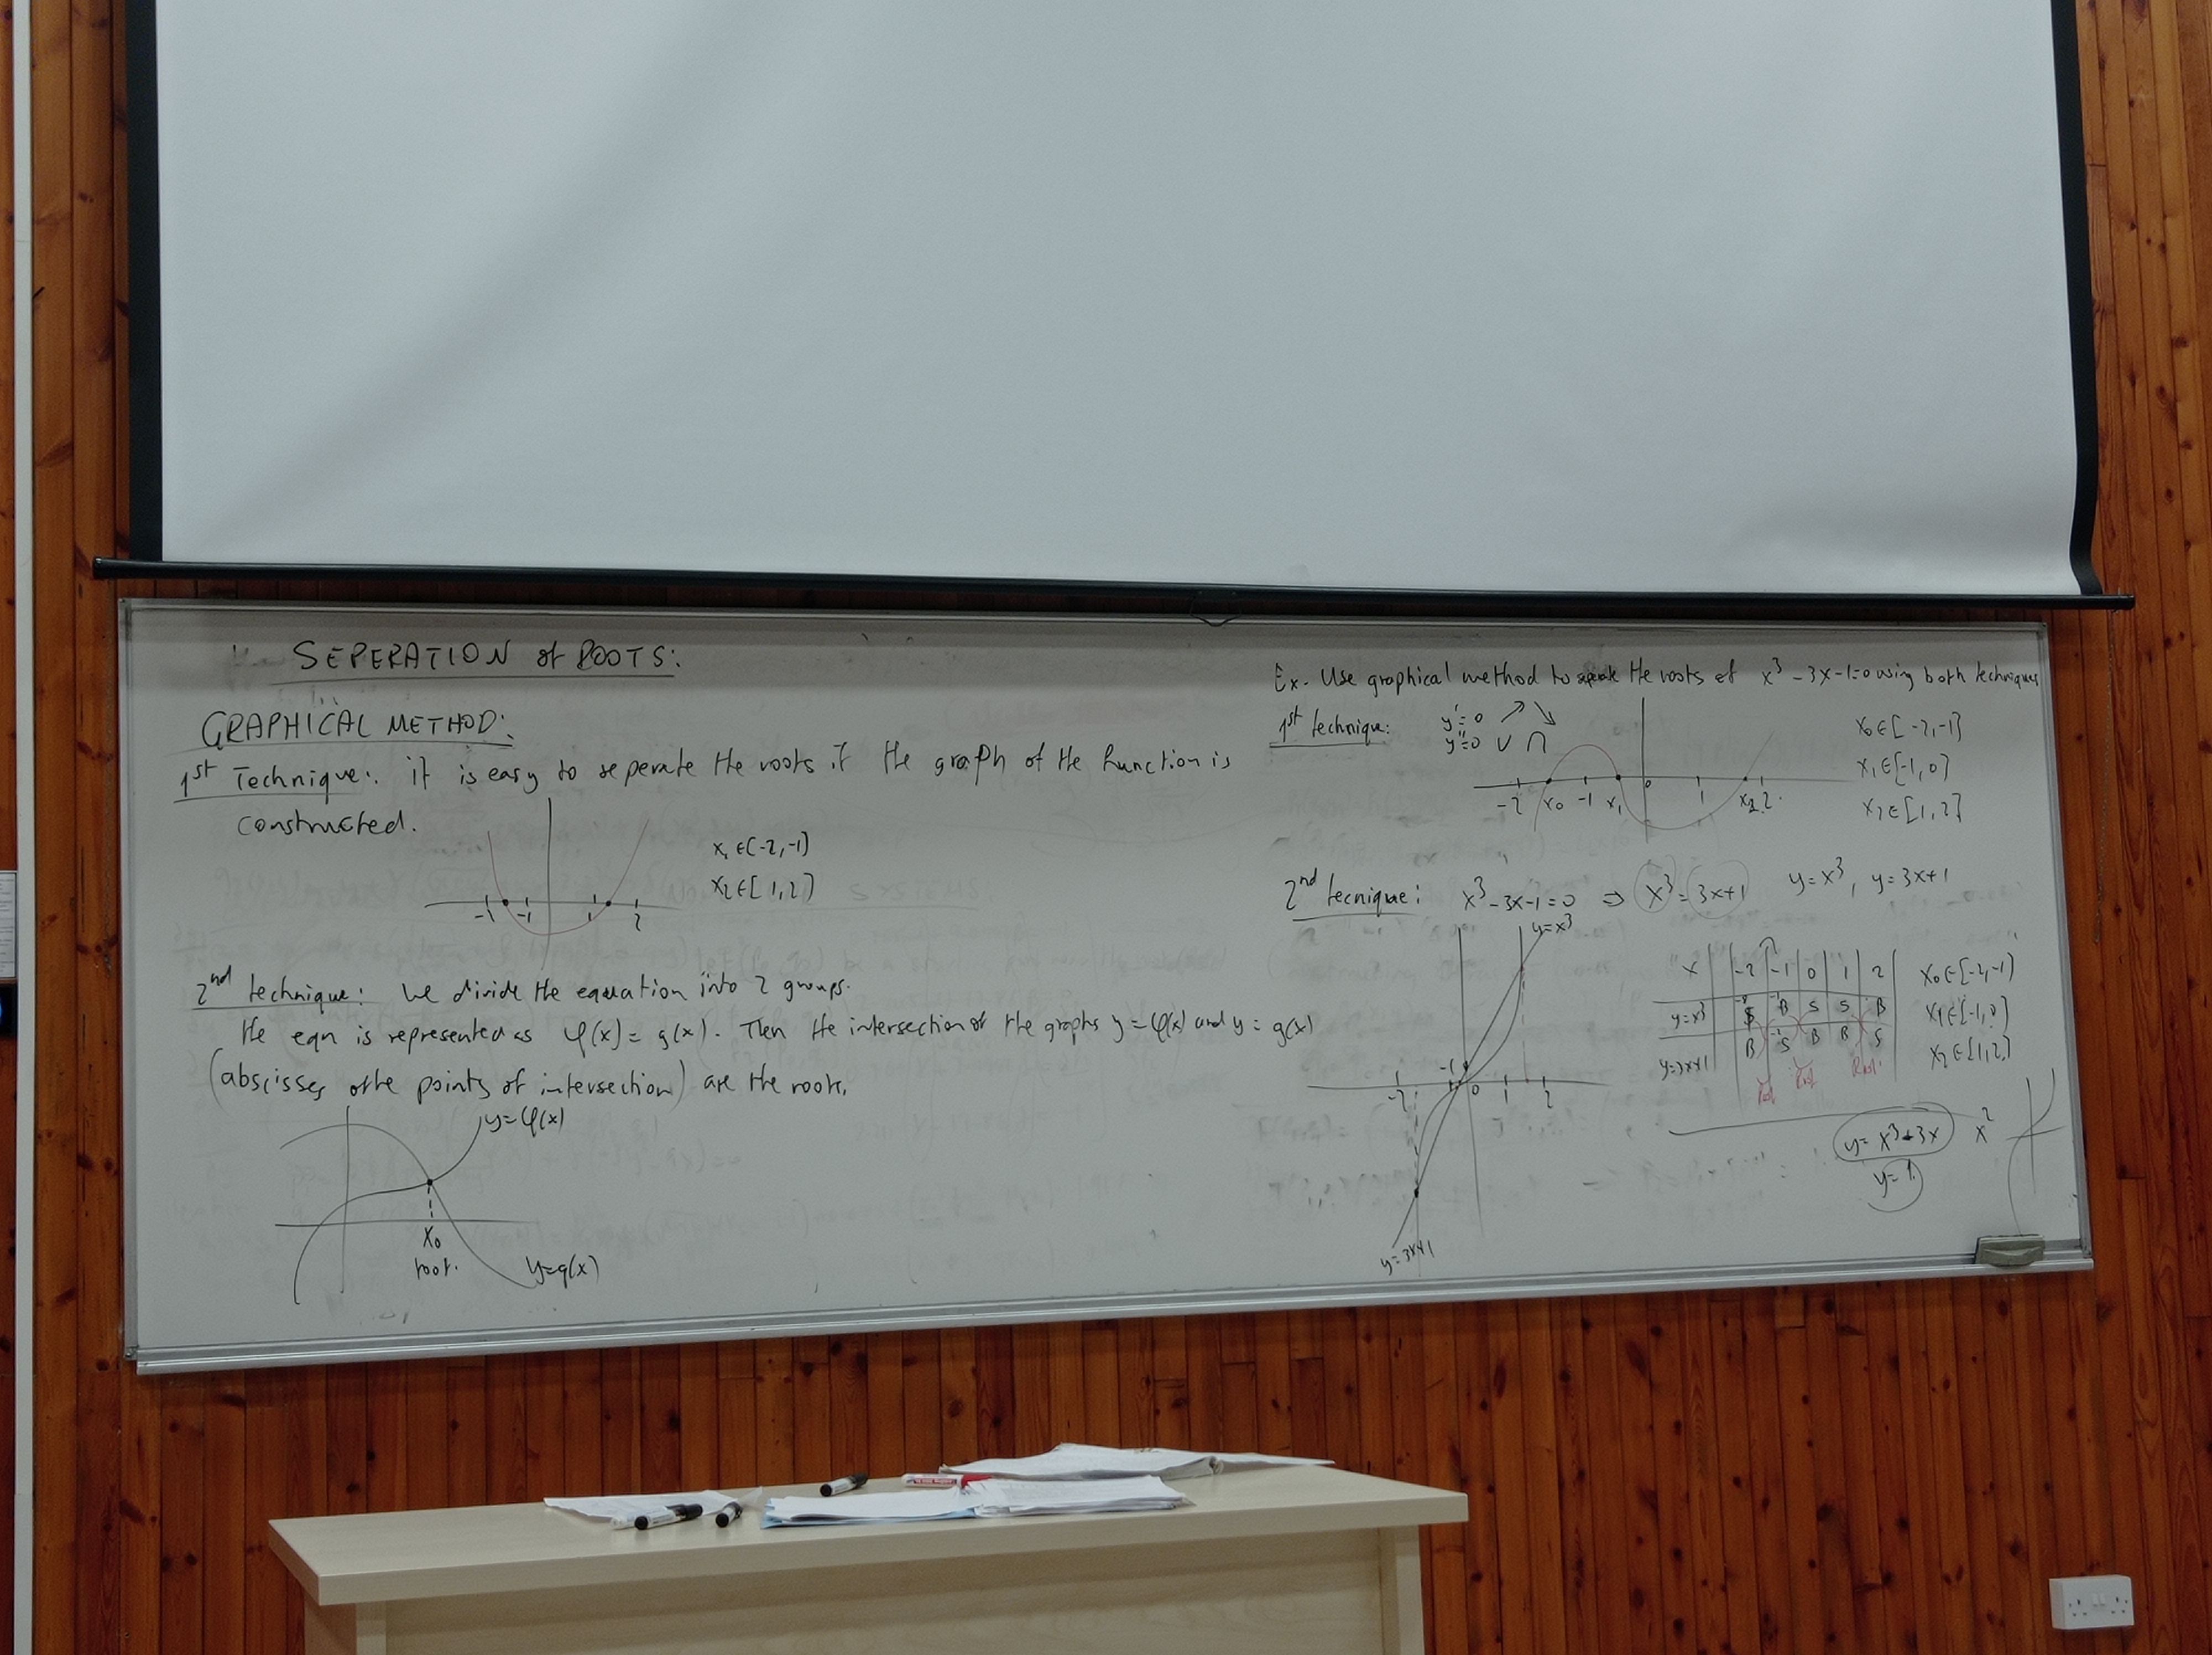 SEPERATION of ROOTS:
GRAPHICAL METHOD:
1st Technique: it is easy to seperate the roots if the graph of the function is
constructed.
x₁ ∈ (-2,-1)
x₂ ∈ [1,2)
-1 -1 1 2
2nd technique: We divide the equation into 2 groups.
the eqn is represented as φ(x) = g(x). Then the intersection of the graphs y = φ(x) and y = g(x)
(abscisses of the points of intersection) are the roots.
y=φ(x)
x₀
root.
y=g(x)
Ex. Use graphical method to the roots of x³ - 3x - 1 = 0 using both techniques
1st technique:
y'=0 ↗ ↘
y''=0 ∪ ∩
-2 x₀ -1 x₁ 0 1 x₂ 2
x₀ ∈ [-2,-1]
x₁ ∈ [-1,0]
x₂ ∈ [1,2]
2nd tecnique: x³ - 3x - 1 = 0 ⇒ x³ = 3x+1 y = x³, y = 3x+1
y=x³
-2 -1 0 1 2
y=3x+1
x -2 -1 0 1 2
y=x³ -8 S -1 B S S B
y=3x+1 B S B B S
Root Root Root
x₀ ∈ [-2,-1]
x₁ ∈ [-1,0]
x₂ ∈ [1,2]
y = x³-3x x²
y = 1